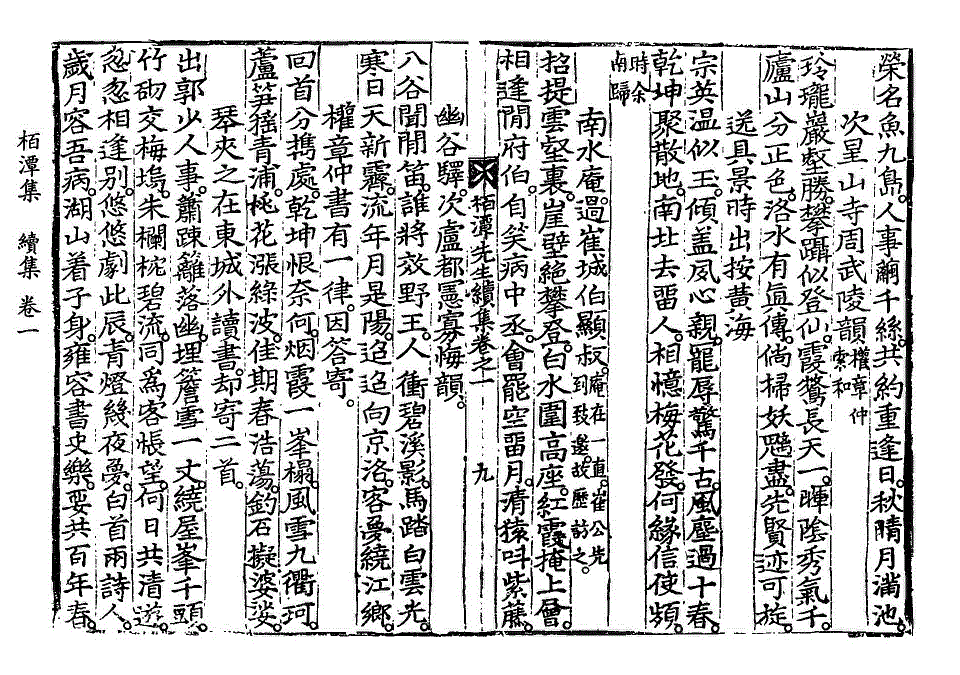 榮名魚九鳥。人事繭千絲。共約重逢日。秋晴月滿池。
次星山寺周武陵韻 權章仲索和
玲瓏巖壑勝。攀躡似登仙。霞鶩長天一。暉陰秀氣千。
廬山分正色。洛水有眞傳。倘掃妖魑盡。先賢迹可旋。
送具景時出按黃海
宗英温似玉。傾盖夙心親。寵辱驚千古。風塵過十春。
乾坤聚散地。南北去留人。相憶梅花發。何緣信使頻。 時余南歸
南水庵。過崔城伯顯叔。 庵在一直。崔公先到致邀。故歷訪之。
招提雲壑裏。崖壁絶攀登。白水圍高座。紅霞掩上層。
相逢閒府伯。自笑病中丞。會罷空留月。淸猿叫紫藤。
栢潭先生續集卷之一 九
幽谷驛。次盧都憲寡悔韻。
八谷聞閒笛。誰將效野王。人衝碧溪影。馬踏白雲光。
寒日天新霽。流年月是陽。迢迢向京洛。客夢繞江鄕。
權章仲書有一律。因答寄。
回首分携處。乾坤恨奈何。烟霞一峯榻。風雪九衢珂。
蘆笋猺靑浦。桃花漲綠波。佳期春浩蕩。釣石擬婆娑。
琴夾之在東城外讀書。却寄二首。
出郭少人事。蕭踈籬落幽。埋簷雪一丈。繞屋峯千頭。
竹砌交梅塢。朱欄枕碧流。同爲客悵望。何日共淸遊。
忽忽相逢別。悠悠劇此辰。靑燈幾夜夢。白首兩詩人。
歲月容吾病。湖山着子身。雍容書史樂。要共百年春。
栢潭集 續集 卷一